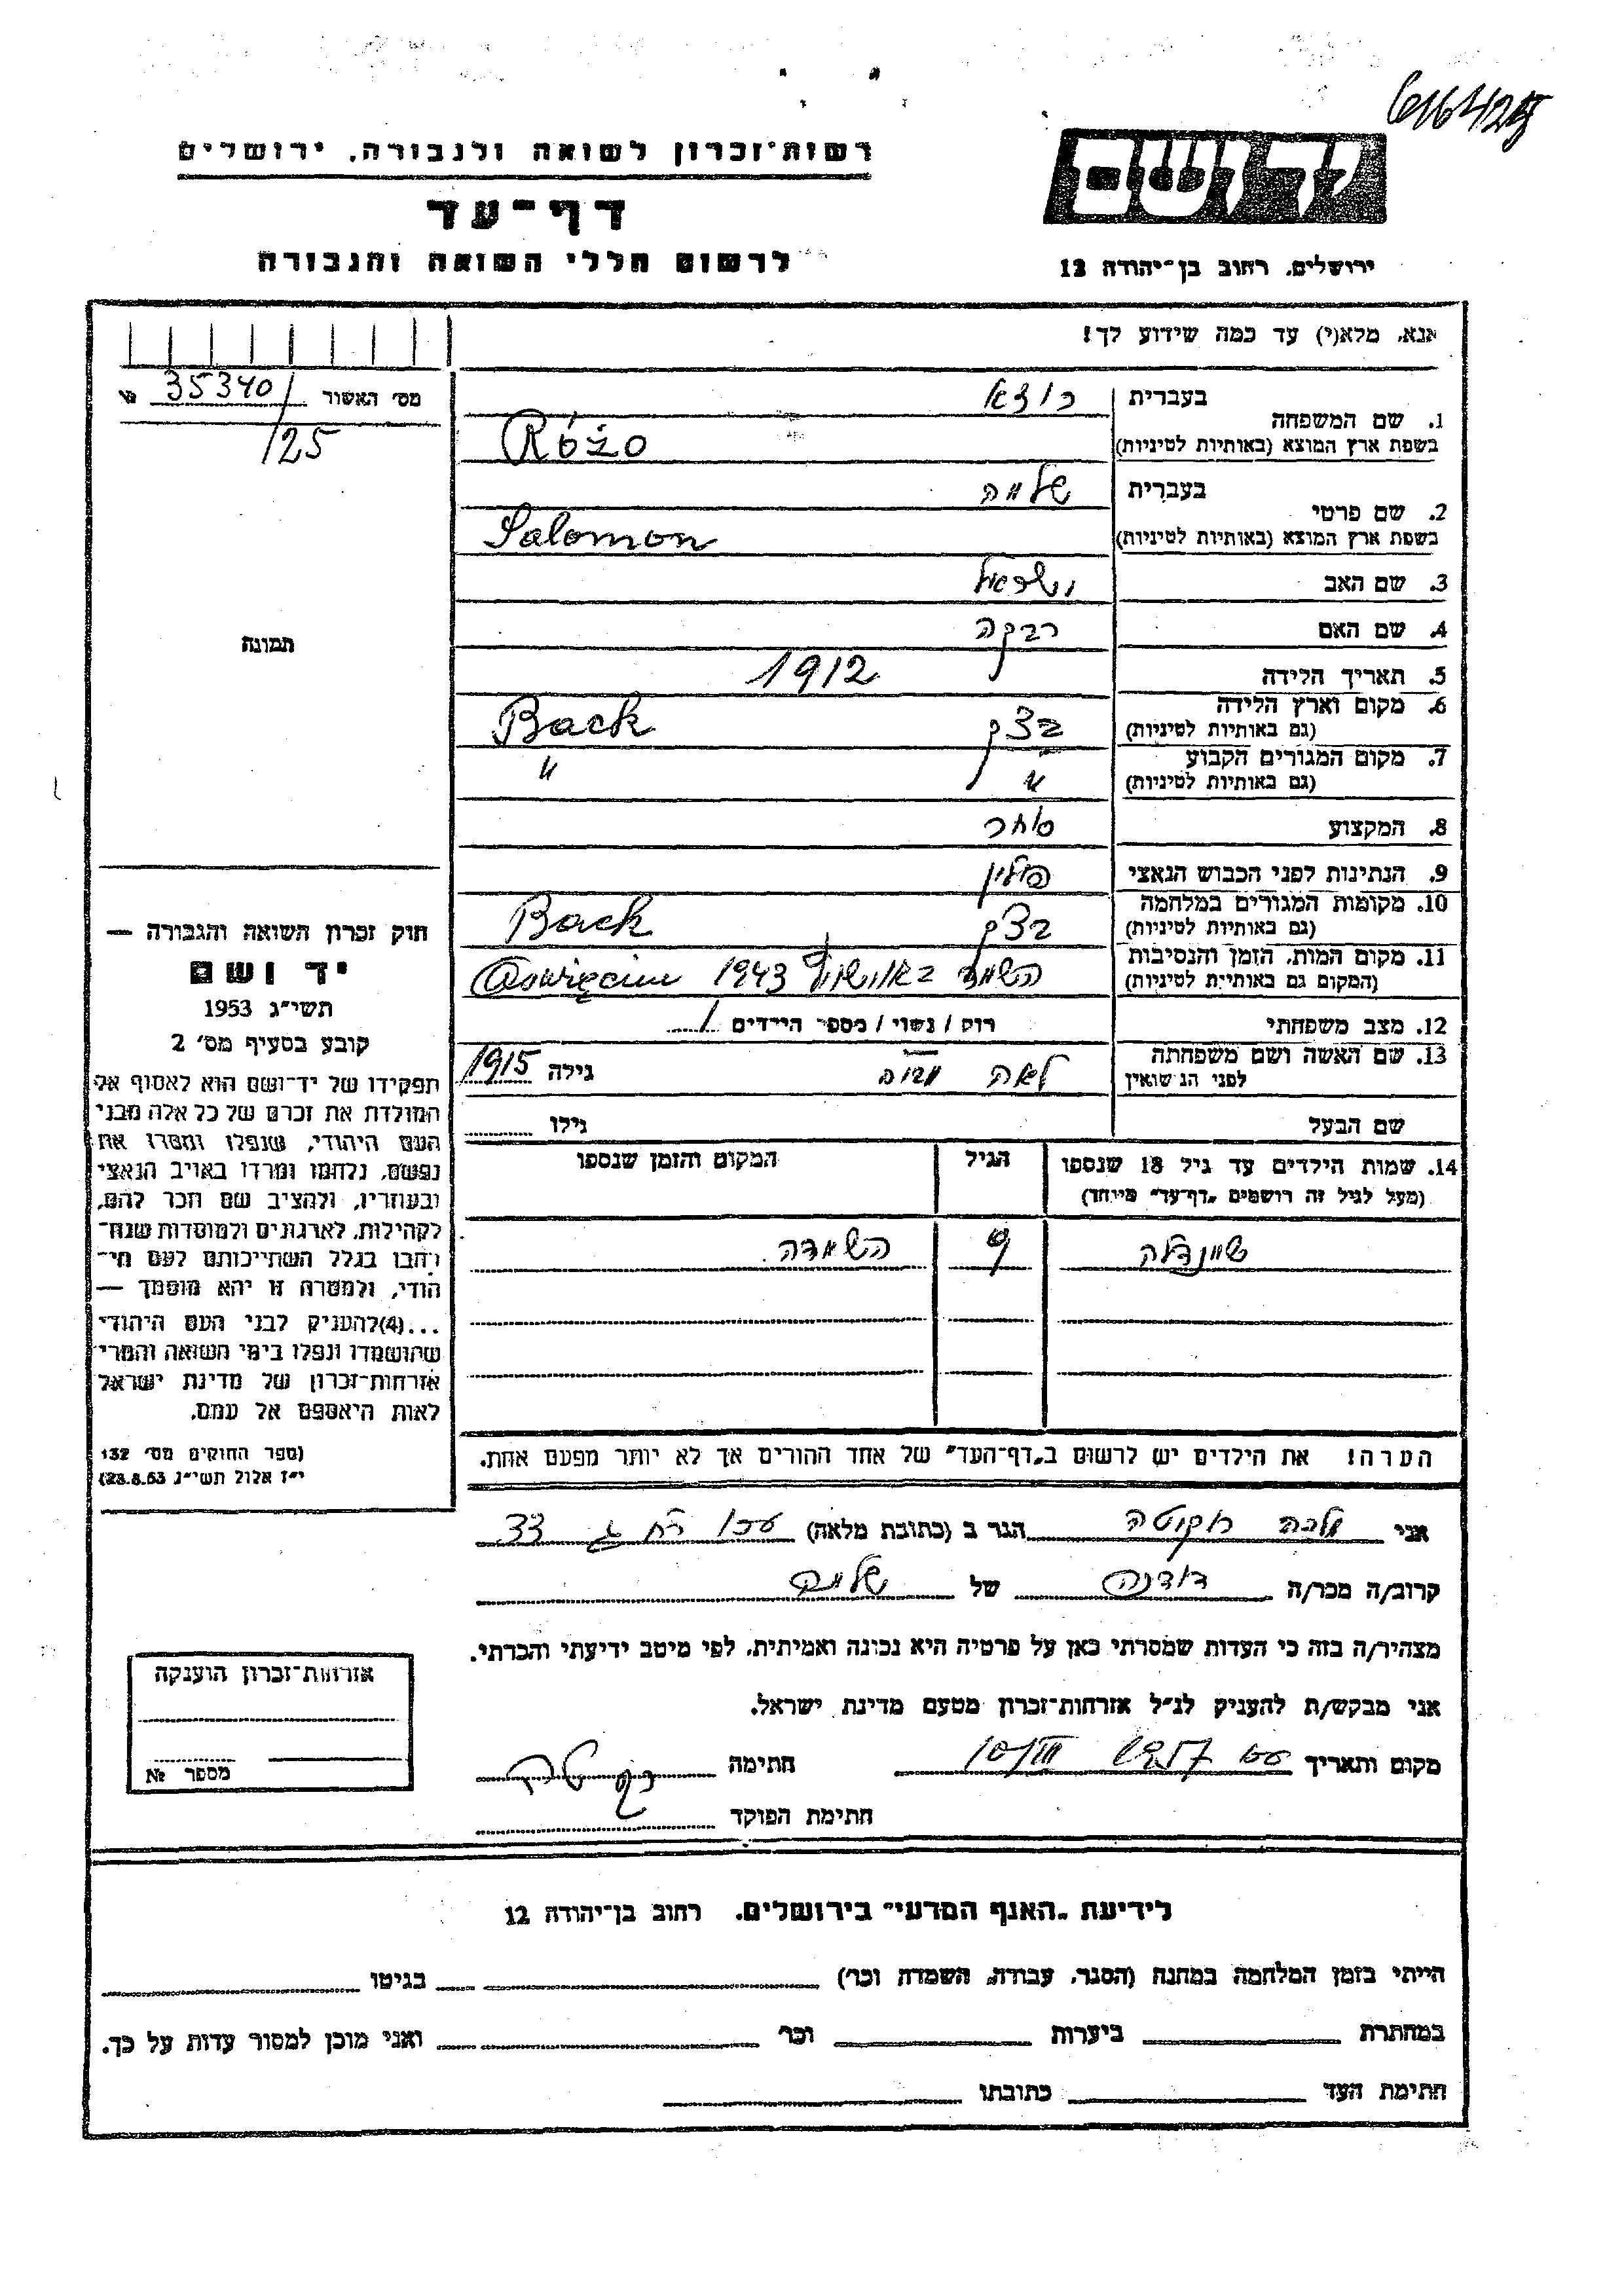 616425
רשות־זכרון לשואה ולגבורה. ירושלים
דף־עד
לרשום חללי השואה והגבורה
יד ושם
ירושלים. רחוב בן־יהודה 12
אנא. מלא(י) עד כמה שידוע לך!
מס׳ האשור 35340 №
125
תמונה
חוק זכרון השואה והגבורה —
יד ושם
תשי״ג 1953
קובע בסעיף מס׳ 2
תפקידו של יד־ושם הוא לאסוף אל
המולדת את זכרם של כל אלה מבני
העם היהודי, שנפלו ומסרו את
נפשם. נלחמו ומרדו באויב הנאצי
ובעוזריו, ולהציב שם וזכר להם,
לקהילות. לארגונים ולמוסדות שנח־
רבו בגלל השתייכותם לעם הי־
הודי, ולמטרה זו יהא מוסמך —
...(4)להעניק לבני העם היהודי
שהושמדו ונפלו בימי השואה והמרי
אזרחות־זכרון של מדינת ישראל
לאות היאספם אל עמם.
(ספר החוקים מס׳ 132
י״ז אלול תשי״ג 28.8.53)
1. שם המשפחה
בעברית רוזא
בשפת ארץ המוצא (באותיות לטיניות) Różo
2. שם פרטי
בעברית שלמה
בשפת ארץ המוצא (באותיות לטיניות) Salomon
3. שם האב ישראל
4. שם האם רבקה
5. תאריך הלידה 1912
6. מקום וארץ הלידה
(גם באותיות לטיניות) Back
7. מקום המגורים הקבוע
(גם באותיות לטיניות) " "
8. המקצוע סוחר
9. הנתינות לפני הכבוש הנאצי פולין
10. מקומות המגורים במלחמה
(גם באותיות לטיניות) Back
11. מקום המות. הזמן והנסיבות
(המקום גם באותיות לטיניות) 1943 Oswięcim
12. מצב משפחתי רוק / נשוי / מספר הילדים 1
13. שם האשה ושם משפחתה
לפני הנשואין לאה גילה 1915
שם הבעל גילו
14. שמות הילדים עד גיל 18 שנספו הגיל המקום והזמן שנספו
(מעל לגיל זה רושמים „דף־עד״ מיוחד)
שיינדלה השמדה
הערה! את הילדים יש לרשום ב„דף־העד״ של אחד ההורים אך לא יותר מפעם אחת.
אני מלכה הגר ב (כתובת מלאה) 33
קרוב/ה מכר/ה דודנה של שלמה
מצהיר/ה בזה כי העדות שמסרתי כאן על פרטיה היא נכונה ואמיתית. לפי מיטב ידיעתי והכרתי.
אני מבקש/ת להעניק לנ״ל אזרחות־זכרון מטעם מדינת ישראל.
מקום ותאריך חתימה
חתימת הפוקד
אזרחות־זכרון הוענקה
מספר №
לידיעת „האגף המדעי״ בירושלים. רחוב בן־יהודה 12
הייתי בזמן המלחמה במחנה (הסגר, עבודה, השמדה וכו׳) בגיטו
במחתרת ביערות וכו׳ ואני מוכן למסור עדות על כך.
חתימת העד כתובתו